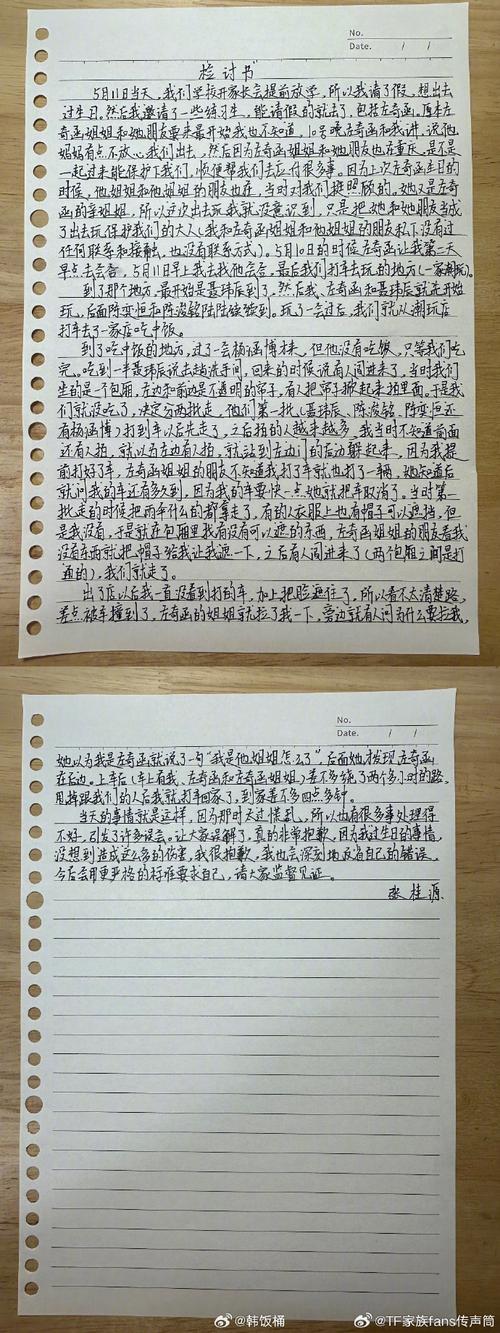 No.
Date. / /
检讨书
5月11日当天，我们学校开家长会提前放学，所以我请了假，想出去
过生日。然后我邀请了一些练习生，能请假的就去了，包括左奇函。原本左
奇函姐姐和她朋友要来最开始我也不知道，10号晚左奇函和我讲，说他
妈妈有点不放心我们出去，然后因为左奇函姐姐和她朋友也在重庆，是不是
一起过来能保护下我们，顺便帮我们去应付很多事。因为上次左奇函生日的
时候，他姐姐和他姐姐的朋友也在，当时对我们挺照顾的，她又是左奇
函的亲姐姐，所以这次出去玩我就没意识到，只是把她和她朋友当成
了出去玩保护我们的大人(我和左奇函姐姐和他姐姐的朋友私下没有过
任何联系和接触，也没有联系方式)。5月10日的时候左奇函让我第二天
早点去会合，5月11日早上我去找他会合，最后我们打车去玩的地方(一家潮玩)。
到了那个地方，最开始是聂玮辰到了，然后我、左奇函和聂玮辰就先开始
玩，后面陈奕恒和陈浚铭陆陆续续到。玩了一会过后，我们就从潮玩店
打车去了一家店吃中饭。
到了吃中饭的地方，过了一会杨涵博才来，但他没有吃饭，只等我们吃
完。吃到一半聂玮辰说出去趟洗手间，回来的时候说有人闯进来了，当时我们
坐的是个包厢，左边和前边是不透明的帘子，有人把帘子掀起来拍里面。于是我
们就没吃了，决定分两批走，他们第一批(聂玮辰、陈浚铭、陈奕恒还
有杨涵博)打到车以后先走了，之后拍的人越来越多，我当时不知道前面
还有人拍，就以为左边有人拍，就站到左边门的后边躲起来，因为我提
前打好了车，左奇函姐姐的朋友不知道我打了车就也打了一辆，她知道后
就问我的车还有多久到，因为我的车要快一点她就把车取消了，当时第一
批走的时候把雨伞什么的都拿走了，有的人衣服上也有帽子可以遮挡，但
是我没有，于是就在包厢里找有没有可以遮的东西，左奇函姐姐的朋友看我
没有东西就把帽子给我让我遮一下，之后有人闯进来了(两个包厢之间是打
通的)，我们就走了。
出了店以后我一直没看到打的车，加上把脸遮住了，所以看不太清楚路，
差点被车撞到了，左奇函的姐姐就拉了我一下，旁边就有人问为什么要拉我，
No.
Date. / /
她以为我是左奇函就说了一句“我是他姐姐怎么了”，后面她才发现左奇函
在后边。上车后(车上有我、左奇函和左奇函姐姐)差不多绕了两个多小时的路，
甩掉跟我们的人后我就打车回家了，到家差不多四点多钟。
当天的事情就是这样，因为那时太慌乱，所以也有很多事处理得
不好，引发了许多误会。让大家误解了，真的非常抱歉，因为我过生日的事情，
没想到造成这么多的伤害，我很抱歉，我也会深刻地反省自己的错误，
今后会用更严格的标准要求自己，请大家监督见证。
张桂源
@韩饭桶
@TF家族fans传声筒